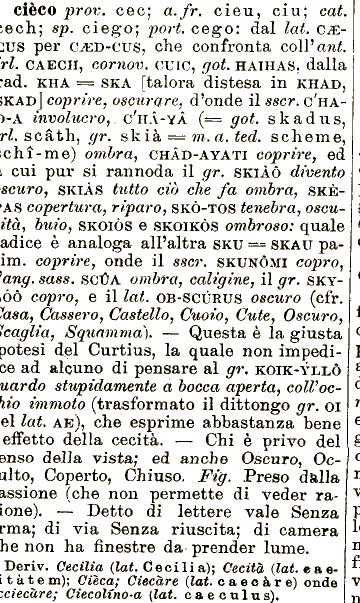 cièco prov. cec; a. fr. cieu, ciu; cat.
cech; sp. ciego; port. cego: dal lat. CÆ-
CUS per CÆD-CUS, che confronta coll'ant.
irl. CAECH, cornov. CUIC, got. HAIHAS, dalla
rad. KHA = SKA [talora distesa in KHAD,
SKAD] coprire, oscurare, d'onde il sscr. C'HA-
D-A involucro, C'HÂ-YÂ (= got. skadus,
irl. scâth, gr. skià = m. a. ted. scheme,
schî-me) ombra, CHÂD-AYATI coprire, ed
a cui pur si rannoda il gr. SKIÀÔ divento
oscuro, SKIÀS tutto ciò che fa ombra, SKÈ-
PAS copertura, riparo, SKÒ-TOS tenebra, oscu-
rità, buio, SKOIÒS e SKOIKÒS ombroso: quale
radice è analoga all'altra SKU = SKAU pa-
rim. coprire, onde il sscr. SKUNÔMI copro,
l'ang. sass. SCÛA ombra, caligine, il gr. SKY-
LÒÔ copro, e il lat. OB-SCÚRUS oscuro (cfr.
Casa, Cassero, Castello, Cuoio, Cute, Oscuro,
Scaglia, Squamma). — Questa è la giusta
ipotesi del Curtius, la quale non impedi-
sce ad alcuno di pensare al gr. KOIK-ÝLLÔ
guardo stupidamente a bocca aperta, coll'oc-
chio immoto (trasformato il dittongo gr. OI
nel lat. AE), che esprime abbastanza bene
l'effetto della cecità. — Chi è privo del
senso della vista; ed anche Oscuro, Oc-
culto, Coperto, Chiuso. Fig. Preso dalla
passione (che non permette di veder ra-
gione). — Detto di lettere vale Senza
firma; di via Senza riuscita; di camera
che non ha finestre da prender lume.
Deriv. Cecilia (lat. Cecilia); Cecità (lat. cae-
citàtem); Cièca; Ciecàre (lat. caecàre) onde
Acciecàre; Ciecolino-a (lat. caeculus).